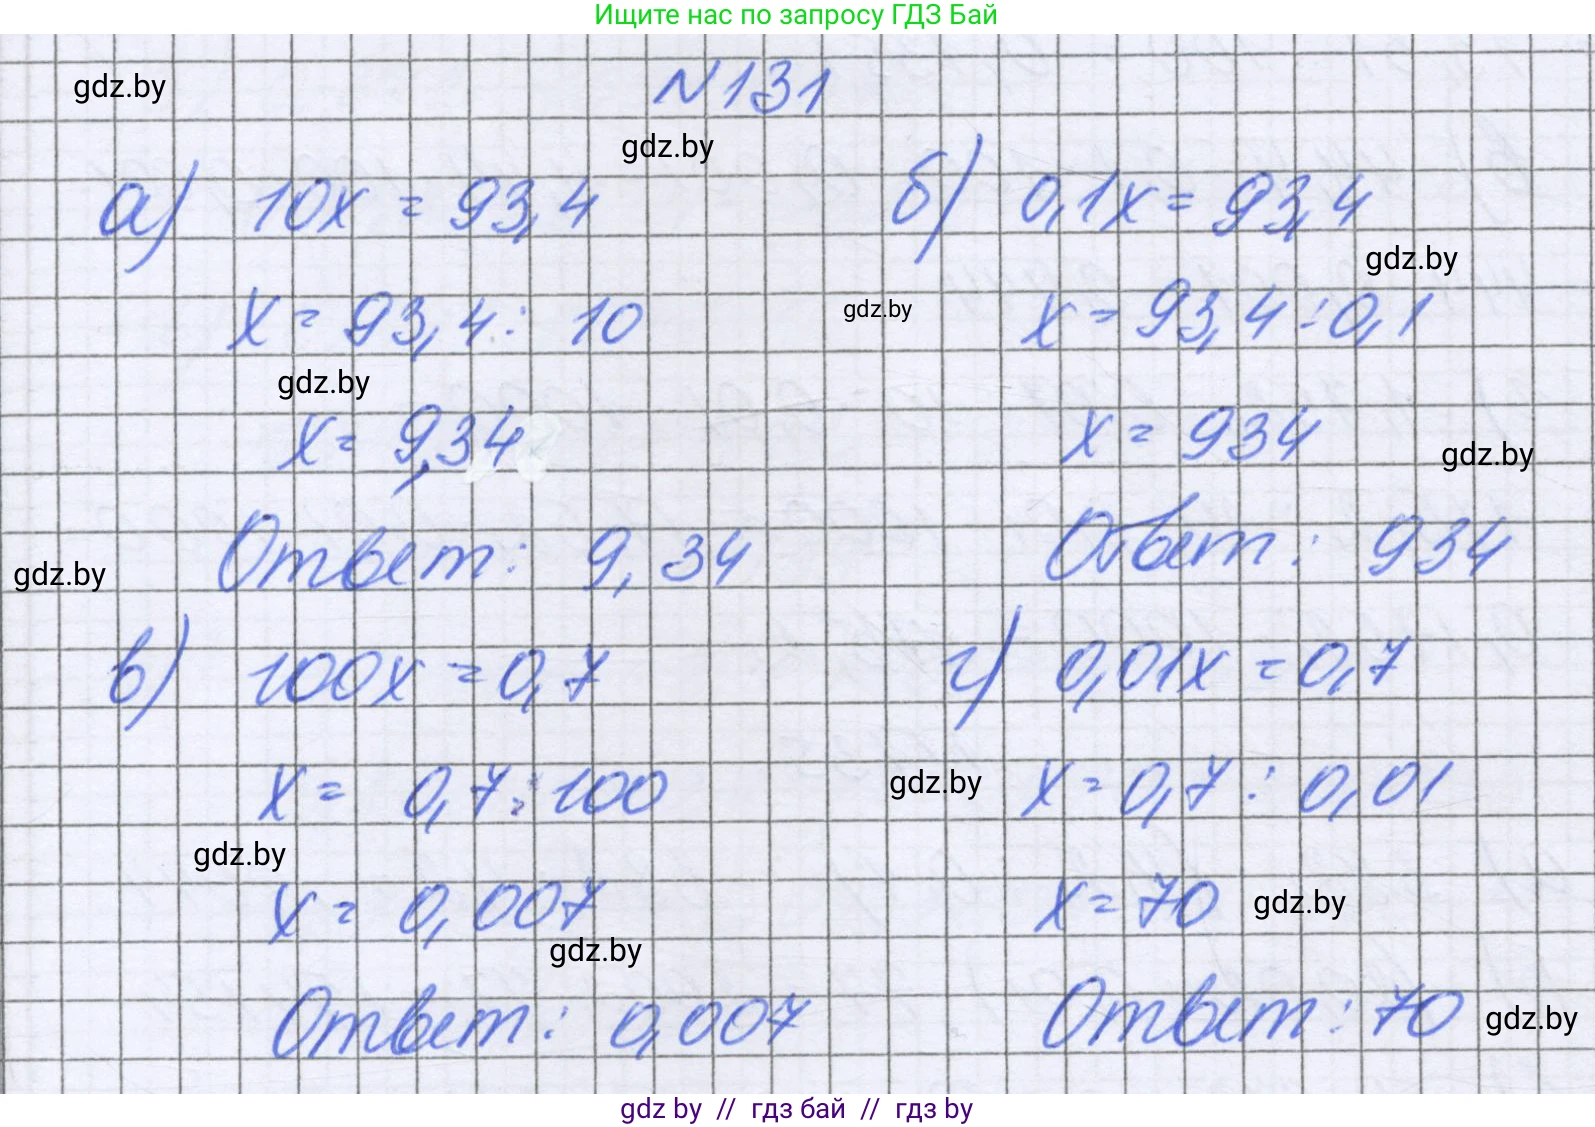 Ищите нас по запросу ГДЗ Бай
gdz.by
N131
gdz.by
а) 10x = 93,4
б) 0,1x = 93,4
gdz.by
x = 93,4 : 10
gdz.by
x = 93,4 : 0,1
gdz.by
x = 9,34
x = 934
gdz.by
Ответ: 9,34
Ответ: 934
gdz.by
в) 100x = 0,7
г) 0,01x = 0,7
x = 0,7 : 100
gdz.by
x = 0,7 : 0,01
gdz.by
x = 0,007
x = 70
gdz.by
gdz.by
Ответ: 0,007
Ответ: 70
gdz.by
gdz by // гдз бай // гдз by